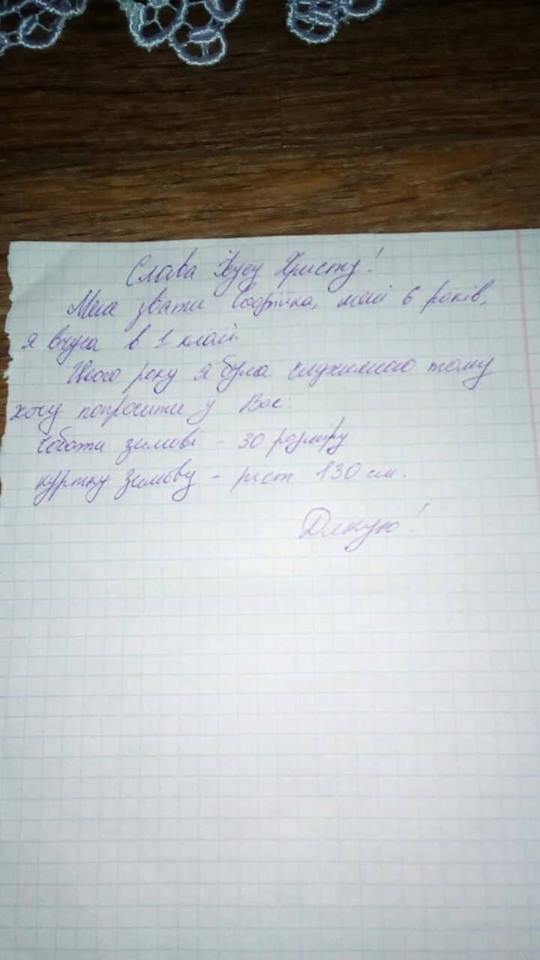 Слава Ісусу Христу!
Мене звати Софійка, мені 6 років,
я вчуся в 1 класі.
Цього року я була слухняною тому
хочу попросити у Вас.
чоботи зимові - 30 розміру
куртку зимову - ріст 130 см.
Дякую!